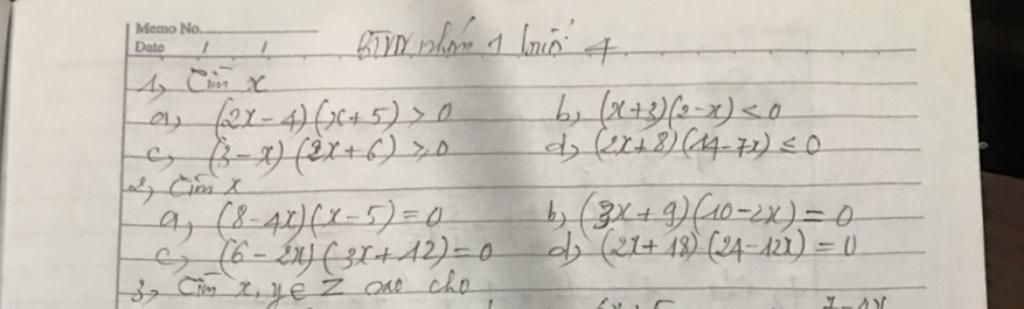 Memo No.
Date / /
BTVN nhóm 1 buổi 4
1, Tìm x
a, (2x-4)(x+5) > 0 b, (x+3)(2-x) < 0
c, (3-x)(2x+6) ≥ 0 d, (2x+8)(14-7x) ≤ 0
2, Tìm x
a, (8-4x)(x-5) = 0 b, (3x+9)(10-2x) = 0
c, (6-2x)(3x+12) = 0 d, (2x+18)(24-12x) = 0
3, Tìm x, y ∈ Z sao cho